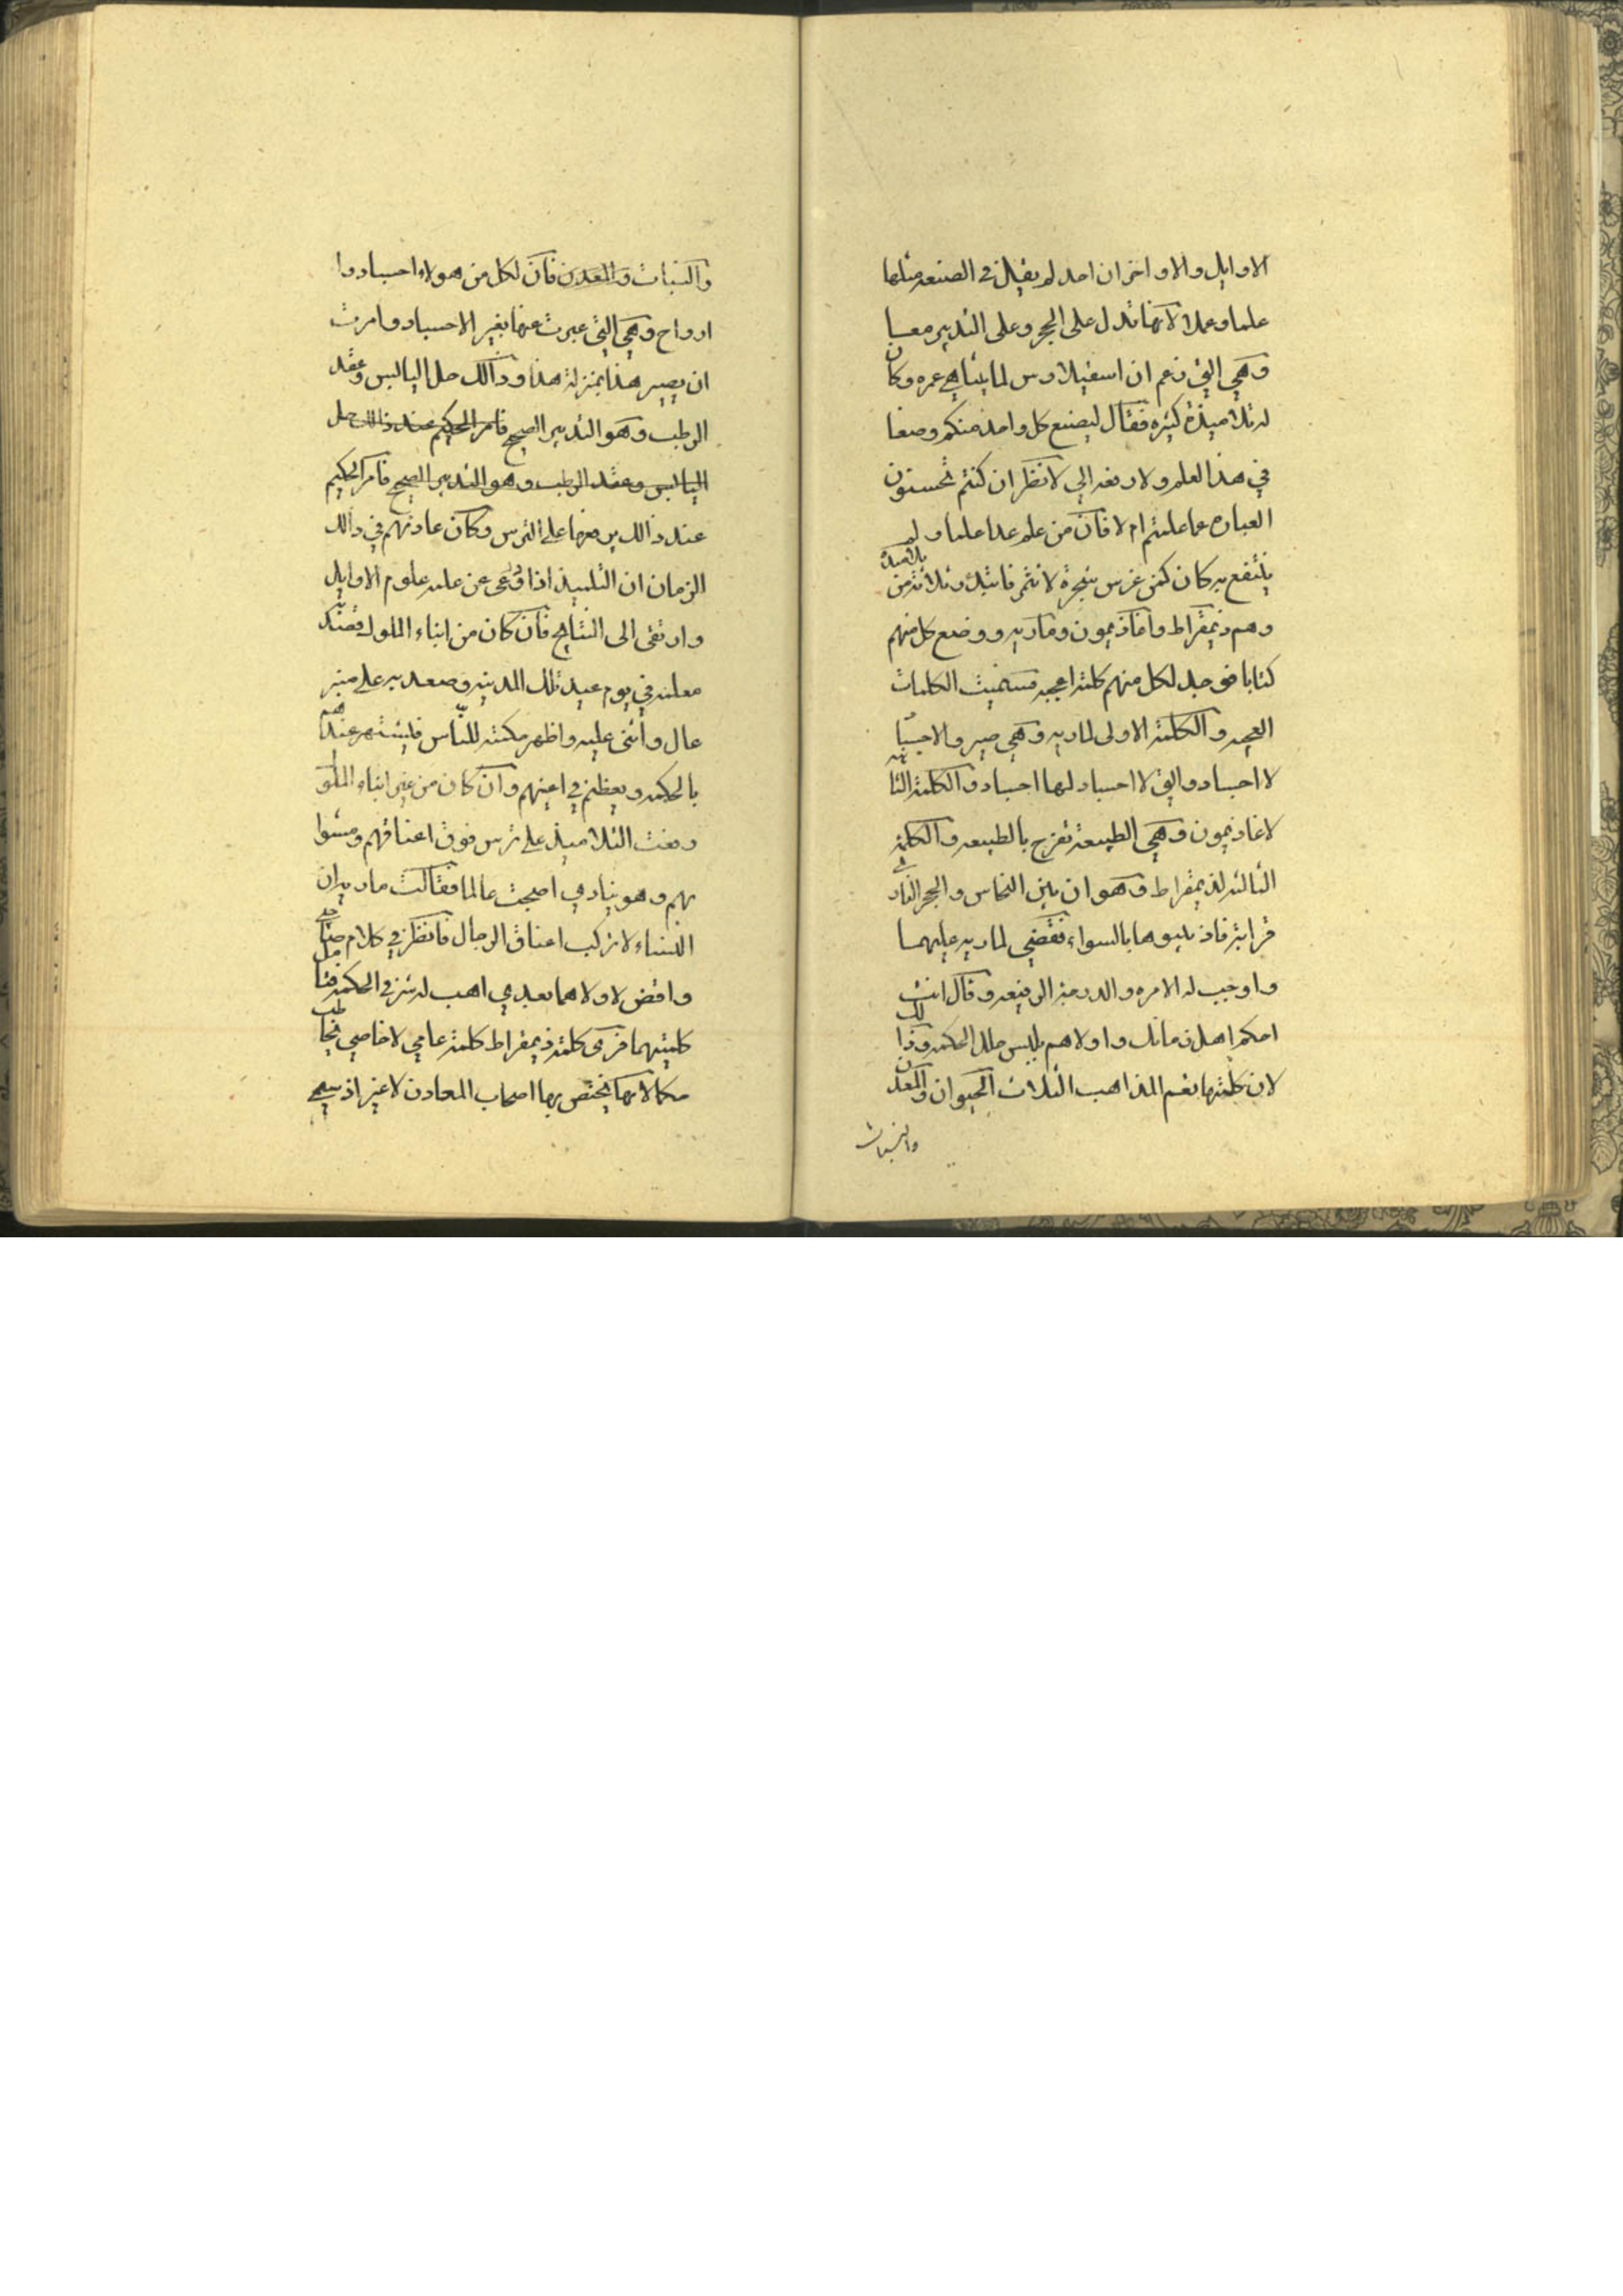 الاوايل والاواخر ان احد لم يقيل في الصنعه مثلها
علما وعملا لانها تدل على الحجر وعلى التدبير معا
وهي التي زعم ان اسفيلاوس لما يتناهي عمره وكان
له تلاميذة كثيره فقال ليصنع كل واحد منكم وصفا
في هذا العلم ولا ودفعه الي لانظر ان كنتم تحسنون
العباره عما علمتم ام لا فان من علم عدا علما ولم
ينتفع به كان كمن غرس شجرة لا تثمر فانتدب ثلاثة من تلامذته
وهم ذيمقراط واغاذيمون وماريه ووضع كل منهم
كتابا فوجد لكل منهم كلمة اعجبه فسميت الكلمات
العجبه والكلمة الاولى لماريه وهي صير والاجسا
لا اجساد والتي لا اجساد لها اجساد والكلمة الثانيه
لاغاذيمون وهي الطبيعة تفرح بالطبيعه والكلمة
الثالثه لذيمقراط وهو ان بين النحاس والحجر الفار
قرابة فاذيبوها بالسواء فقضى لماريه عليهما
واوجب له الامره والدرجة الرفيعه وقال انت
احكم اهل زمانك واولاهم بلبس حلل الحكمه وذالك
لان كلمتها تعم المذاهب الثلاث الحيوان والمعدن
والنبات
والنبات والمعدن فان لكل من هولاء اجساد وا
ارواح وهي التي عبرت عنها بغير الاجساد وامرت
ان يصير هذا بمنزلة هذا وذالك حل اليابس وعقد
الرطب وهو التدبير الصحيح فامر الحكيم عند ذالك حل
اليابس وعقد الرطب وهو التدبير الصحيح فامر الحكيم
عند ذالك برفعها على الترس وكان عادتهم في ذالك
الزمان ان التلميذ اذا وعى عن علمه علوم الاوايل
وارتقى الى التناهي فان كان من ابناء الملوك
معلمه في يوم عيد تلك المدينه وصعد به على منبر
عال واثنى عليه واظهر حكمته للناس فيشتهر عندهم
بالحكمه ويعظم في اعينهم وان كان من غير ابناء الملوك
رفعت التلاميذ على ترس فوق اعناقهم ومشوا
بهم وهو ينادي اصبحت عالما فقالت ماريه ان
النساء لا تركب اعناق الرجال فانظر في كلام
واقض لاولاهما بعدي اهب له في الحكمه فتامل
كلمتيهما فرى كلمة ذيمقراط كلمة عامي لا خاصي
مكالانها يختص بها اصحاب المعادن لا غير اذ